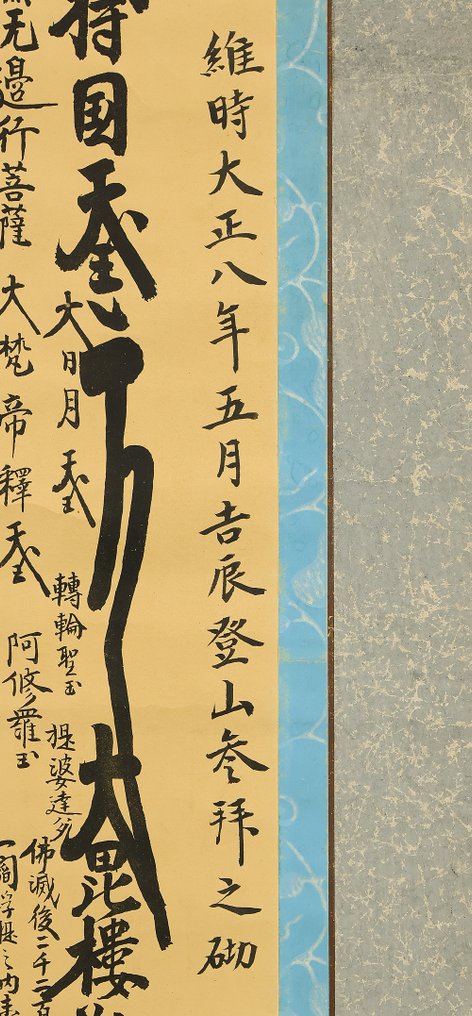 維時大正八年五月吉辰登山参拜之砌
持国天王
大日月天王
轉輪聖王
提婆達多
大毘樓
佛滅後二千二百
无邊行菩薩 大梵帝釋天王
阿修羅王
一閻浮提之内未